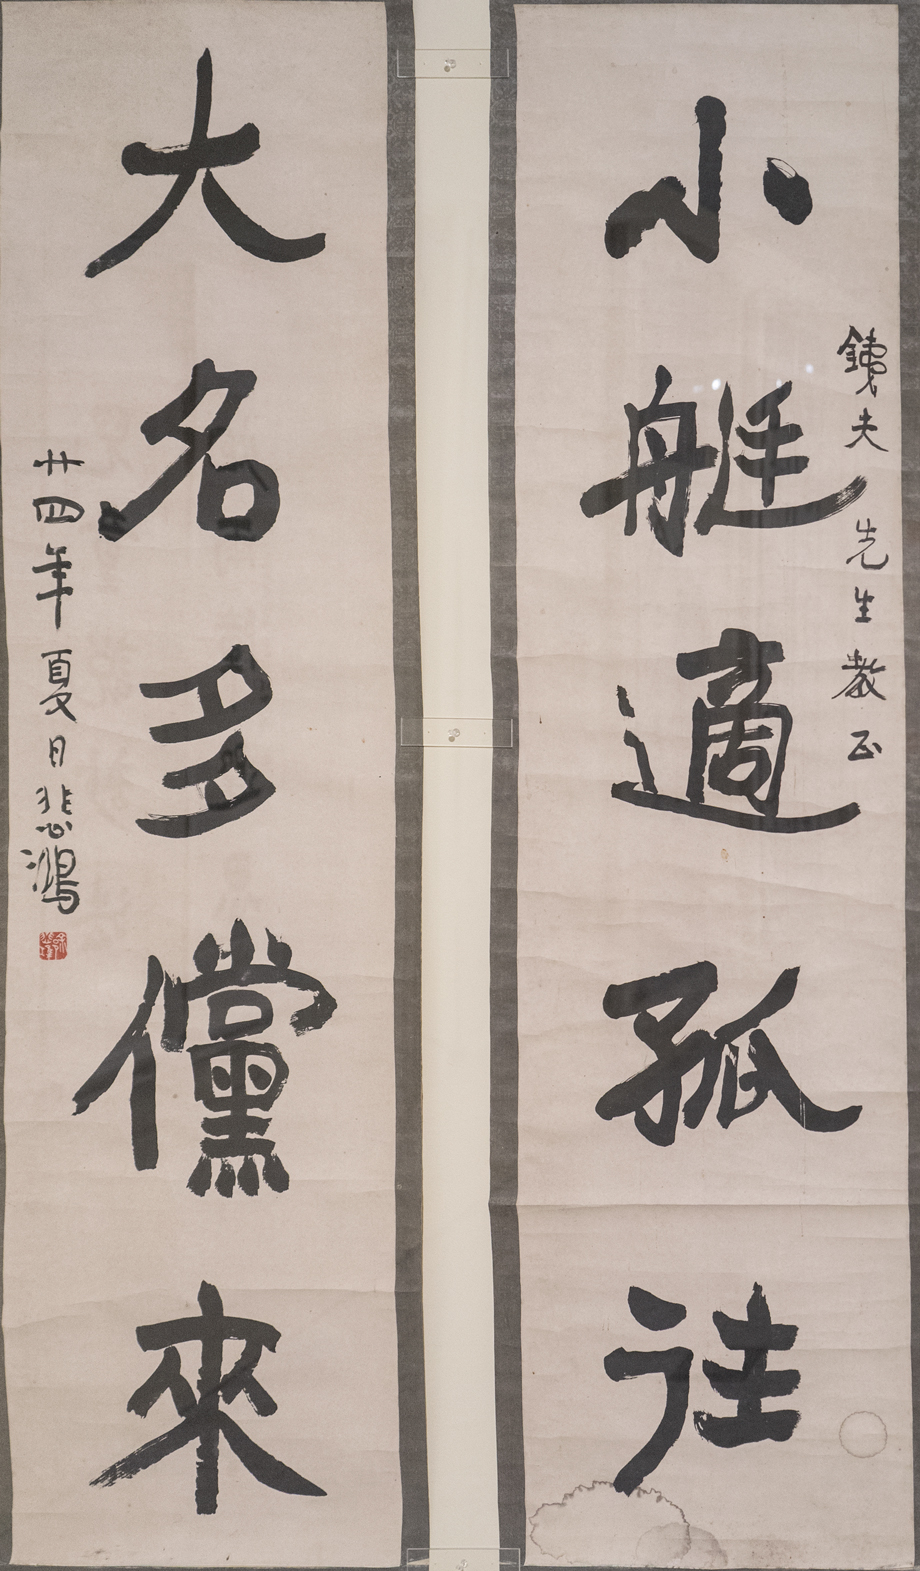 銕夫先生教正
小艇適孤往
大名多儻來
廿四年夏日悲鴻